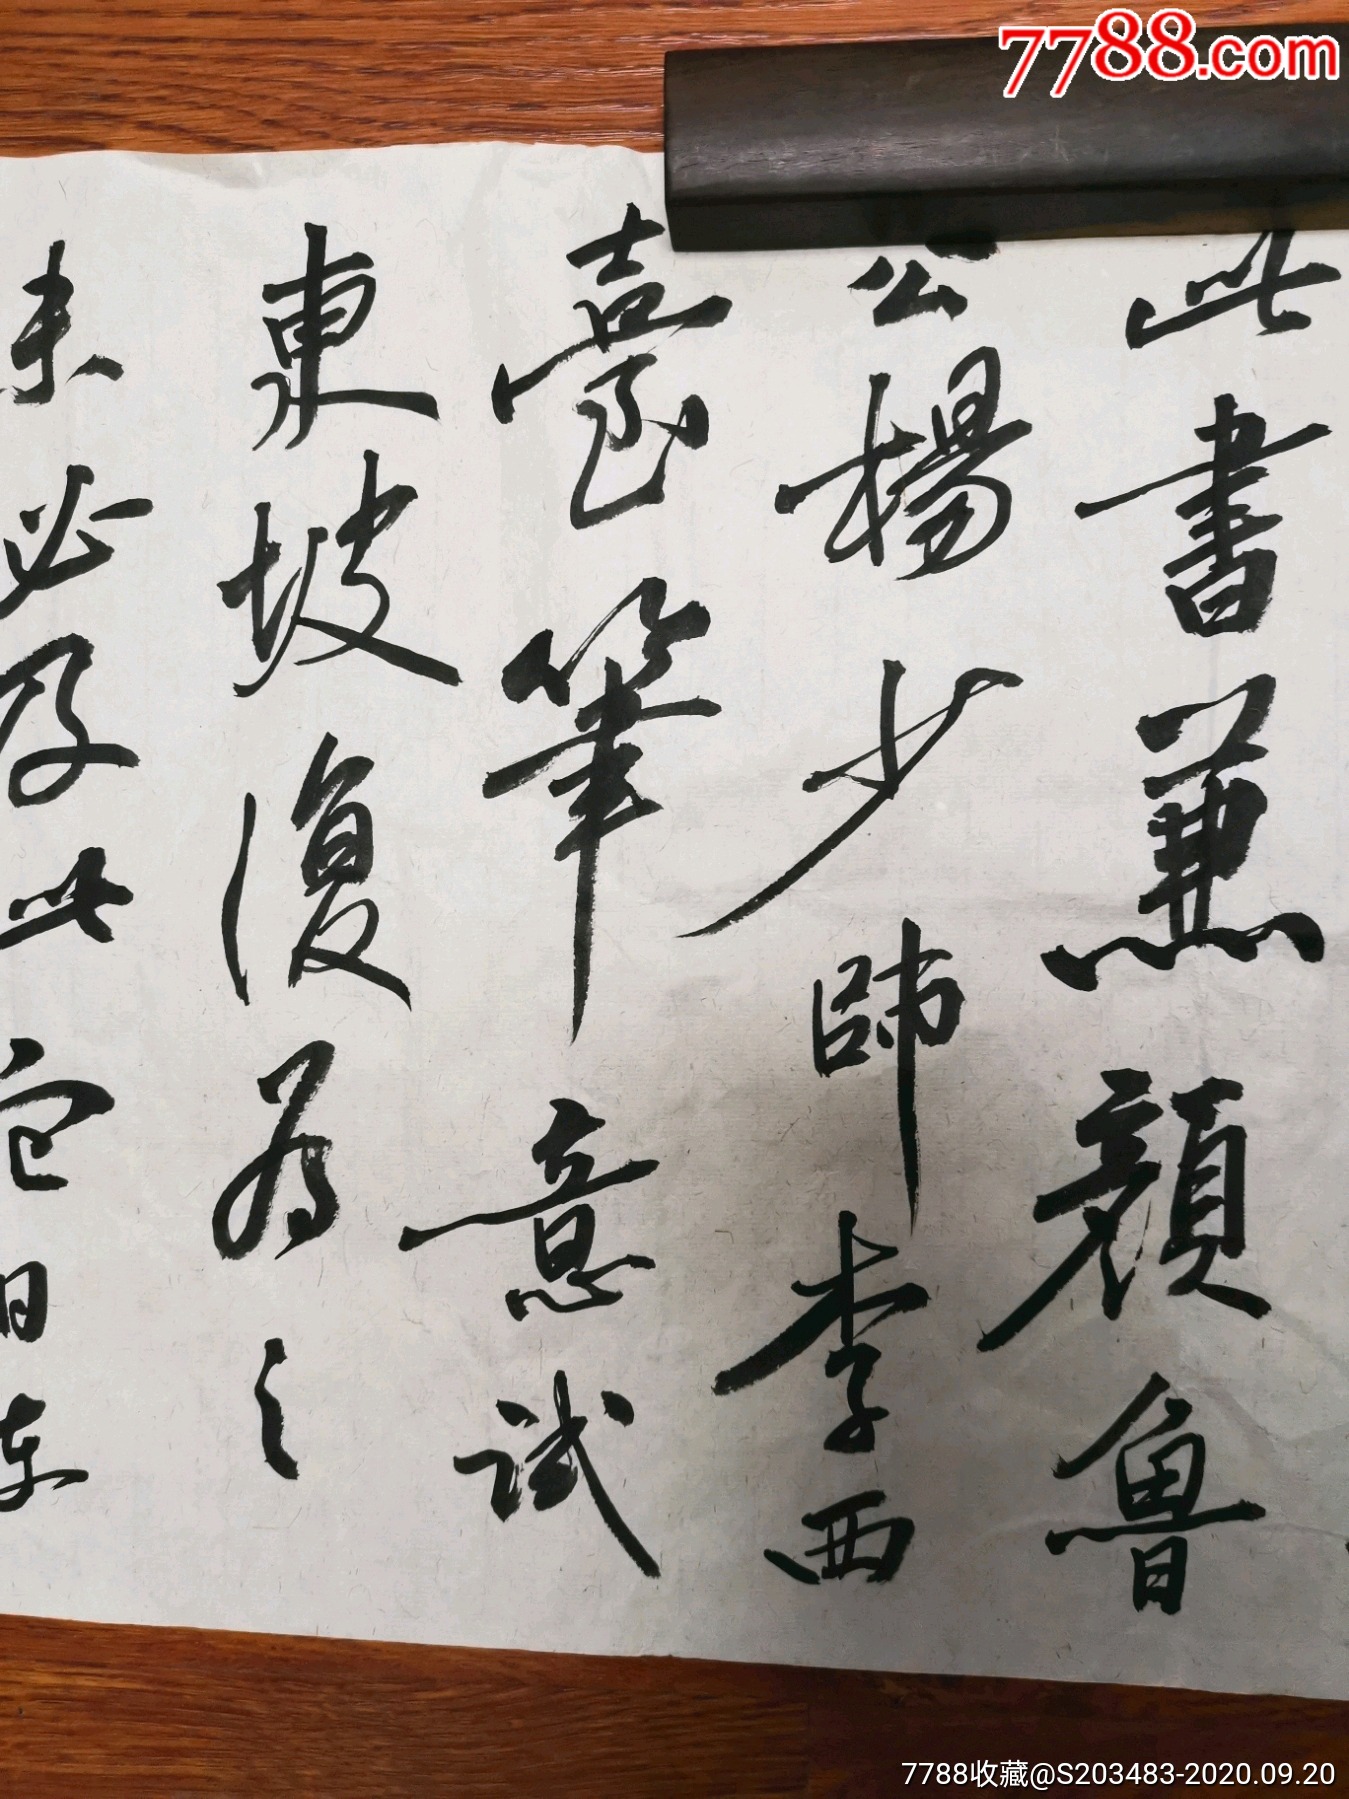 7788.com
此書兼顔魯
公楊少師李西
臺筆意試
東坡復為之
未必及此它日東
7788收藏@S203483-2020.09.20